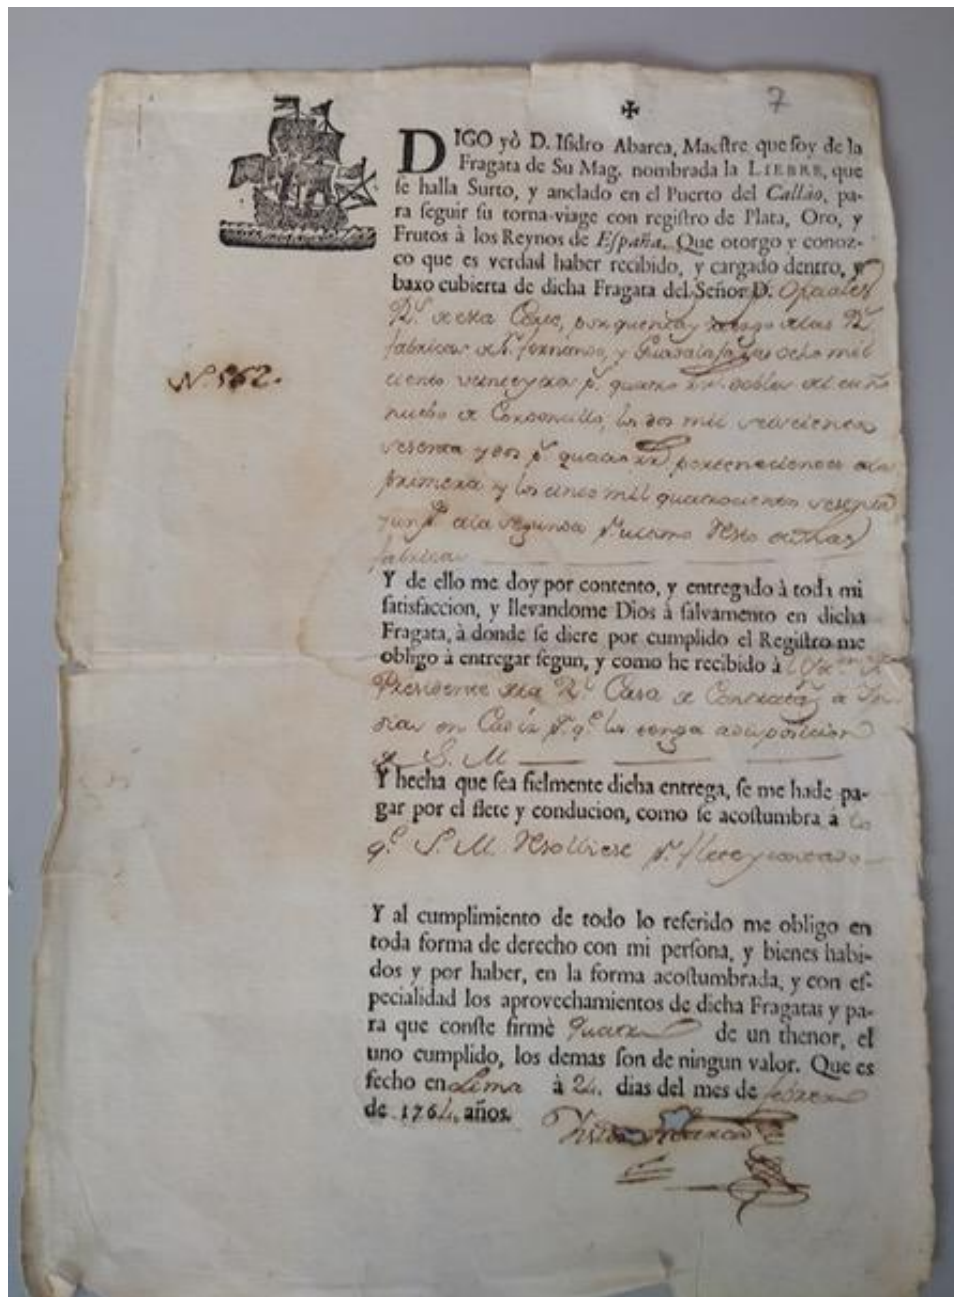 7
✠
DIGO yò D. Isidro Abarca, Maestre que soy de la
Fragata de Su Mag. nombrada la LIEBRE, que
se halla Surto, y anclado en el Puerto del Callào, pa-
ra seguir su torna-viage con registro de Plata, Oro, y
Frutos à los Reynos de España. Que otorgo y conoz-
co que es verdad haber recibido, y cargado dentro, y
baxo cubierta de dicha Fragata del Señor D. Oficiales
Rs. de esta Corte, por quenta y riesgo de las Rs.
fabricas de Sn. fernando, y Guadalajara ocho mil
ciento veinte y tres ps. quatro rs. dobles del cuño
nuebo de Cordoncillo, los dos mil seiscientos
sesenta y dos ps. quatro rs. pertenecientes a la
primera y los cinco mil quatrocientos sesenta
y un ps. a la segunda
fabricas
Nº. 562.
Y de ello me doy por contento, y entregado à toda mi
satisfaccion, y llevandome Dios à salvamento en dicha
Fragata, à donde se diere por cumplido el Registro me
obligo à entregar segun, y como he recibido à
Presidente de la Rl. Casa de Contratan. a In-
dias en Cadiz pa. qe. los tenga a disposicion
de S. M.
Y hecha que sea fielmente dicha entrega, se me ha de pa-
gar por el flete y conducion, como se acostumbra à lo
qe. S. M. Resolbiere
Y al cumplimiento de todo lo referido me obligo en
toda forma de derecho con mi persona, y bienes habi-
dos y por haber, en la forma acostumbrada, y con es-
pecialidad los aprovechamientos de dicha Fragatas y pa-
ra que conste firmè quatro de un thenor, el
uno cumplido, los demas son de ningun valor. Que es
fecho en Lima à 24. dias del mes de febrero
de 1764. años.
Isidro Abarca